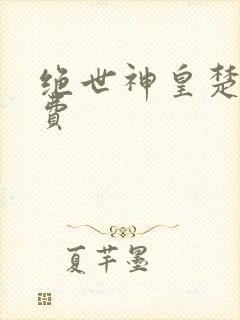 绝世神皇楚
费
夏芊墨